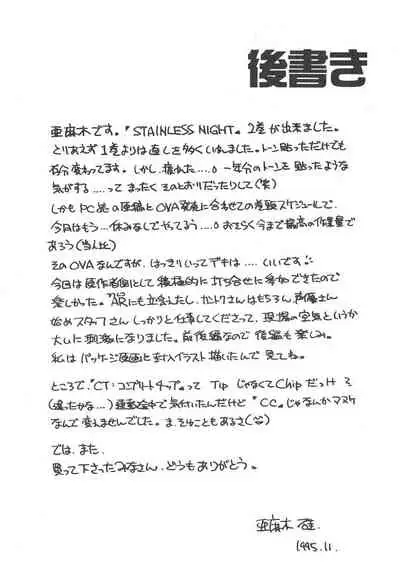 後書き
亜麻木です。『STAINLESS NIGHT』2巻が出来ました。
とりあえず1巻よりは直しを多くいれました。トーン貼っただけでも
随分変わってます。しかし、疲れた….。一年分のトーンを貼ったような
気がする….って まったく そのとおりだったりして(笑)
しかもPC始の原稿とOVA発売に合わせての進行スケジュールで、
今月はもう…休みなしでやってる….。おそらく今まで最高の作業量で
あろう(当人比)
そのOVAなんですが、はっきりいってデキは….いいです。
今回は原作者側として積極的に打ち合せに参加できたので
楽しかった。ARにも立会ったし、カントクさんはもちろん、声優さん
始めスタッフさん しっかりと仕事してくださって、現場の空気というか
大いに刺激になりました。前後編なので後編も楽しみ。
私はパッケージ原画とオマケイラスト描いたんで見てね。
ところで、"CT:コンプリートチップ"って TipじゃなくてChipだっけ?
(違ったかな….)運動会中で気付いたんだけど "CC"じゃなんかマヌケ
なんで変えませんでした。ま、そゆこともあるさ
では、また
買って下さったみなさん、どうもありがとう。
亜麻木 硅
1995.11.